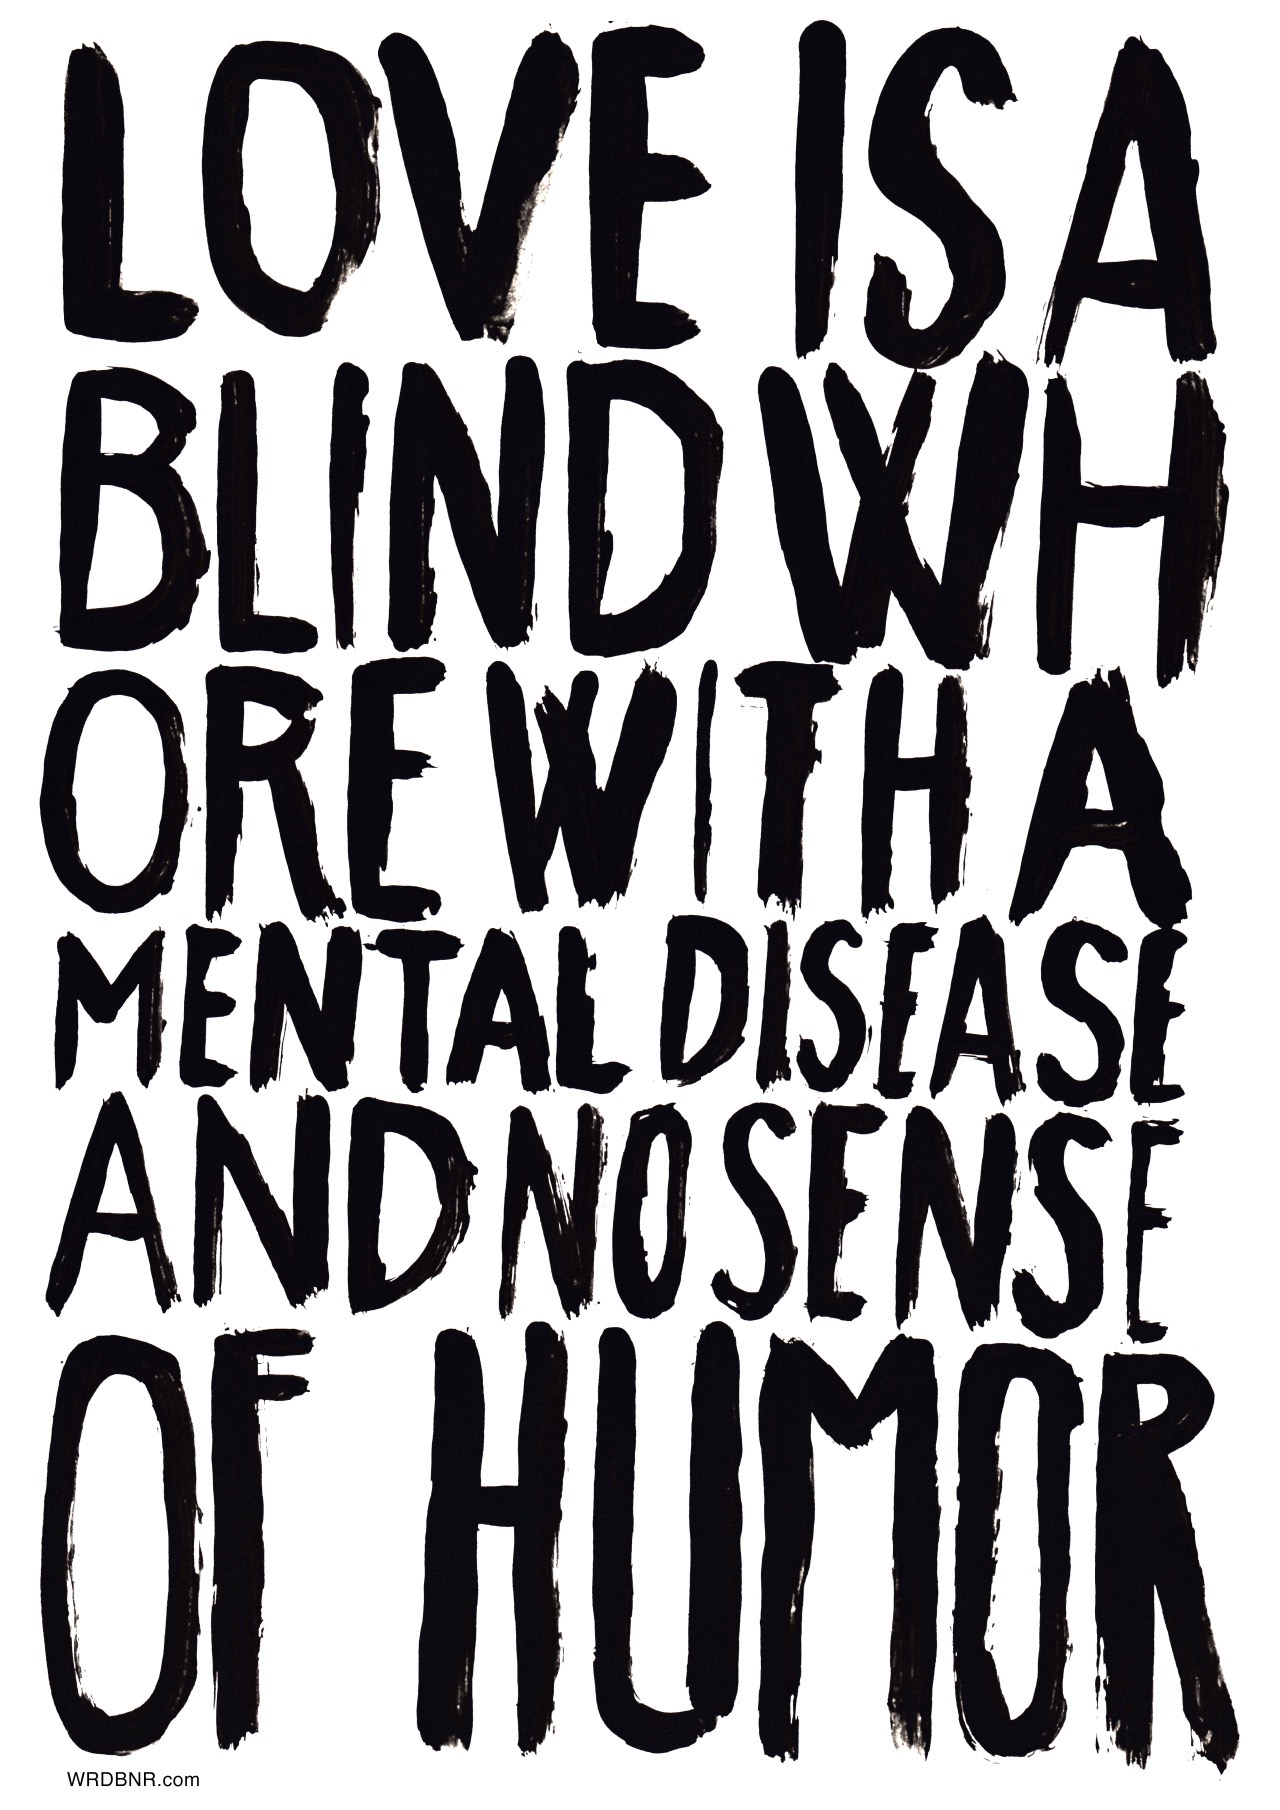 LOVE IS A
BLIND WH
ORE WITH A
MENTAL DISEASE
AND NO SENSE
OF HUMOR
WRDBNR.com